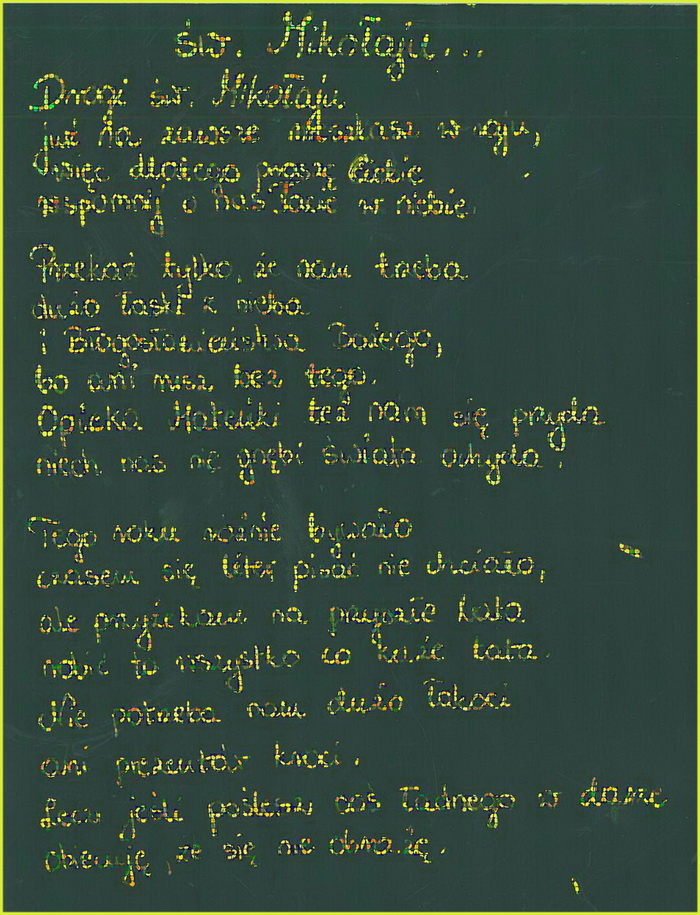 św. Mikołaju...
Drogi św. Mikołaju
już na zawsze mieszkasz w raju,
więc dlatego proszę Ciebie
wspomnij o nas Tacie w niebie.
Przekaż tylko, że nam trzeba
dużo łaski z nieba
i Błogosławieństwa Bożego,
bo ani rusz bez tego.
Opieka Mateńki też nam się przyda
niech nas nie gnębi świata ohyda.
Tego roku różnie bywało
czasem się liter pisać nie chciało,
ale przyrzekam na przyszłe lata
robić to wszystko co każe tata.
Nie potrzeba nam dużo łakoci
ani prezentów kroci.
Lecz jeśli poślesz coś ładnego w darze
obiecuję, że się nie obrażę.